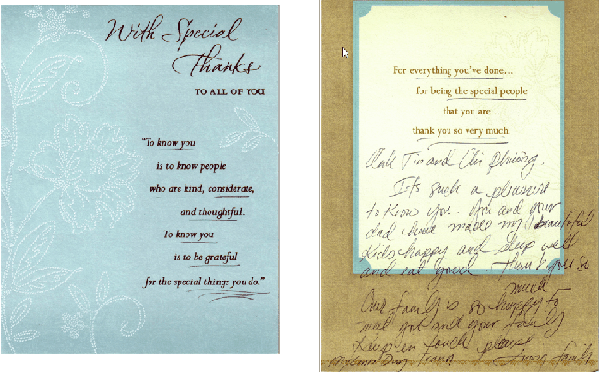 With Special
Thanks
TO ALL OF YOU
"To know you
is to know people
who are kind, considerate,
and thoughtful.
To know you
is to be grateful
for the special things you do."
For everything you've done...
for being the special people
that you are
thank you so very much
and
It's such a
to know you. and your
dad have made my beautiful
kids happy and sleep well
and eat good. Thank you so
much
Our family is so happy to
and your family
Keep in touch please
family